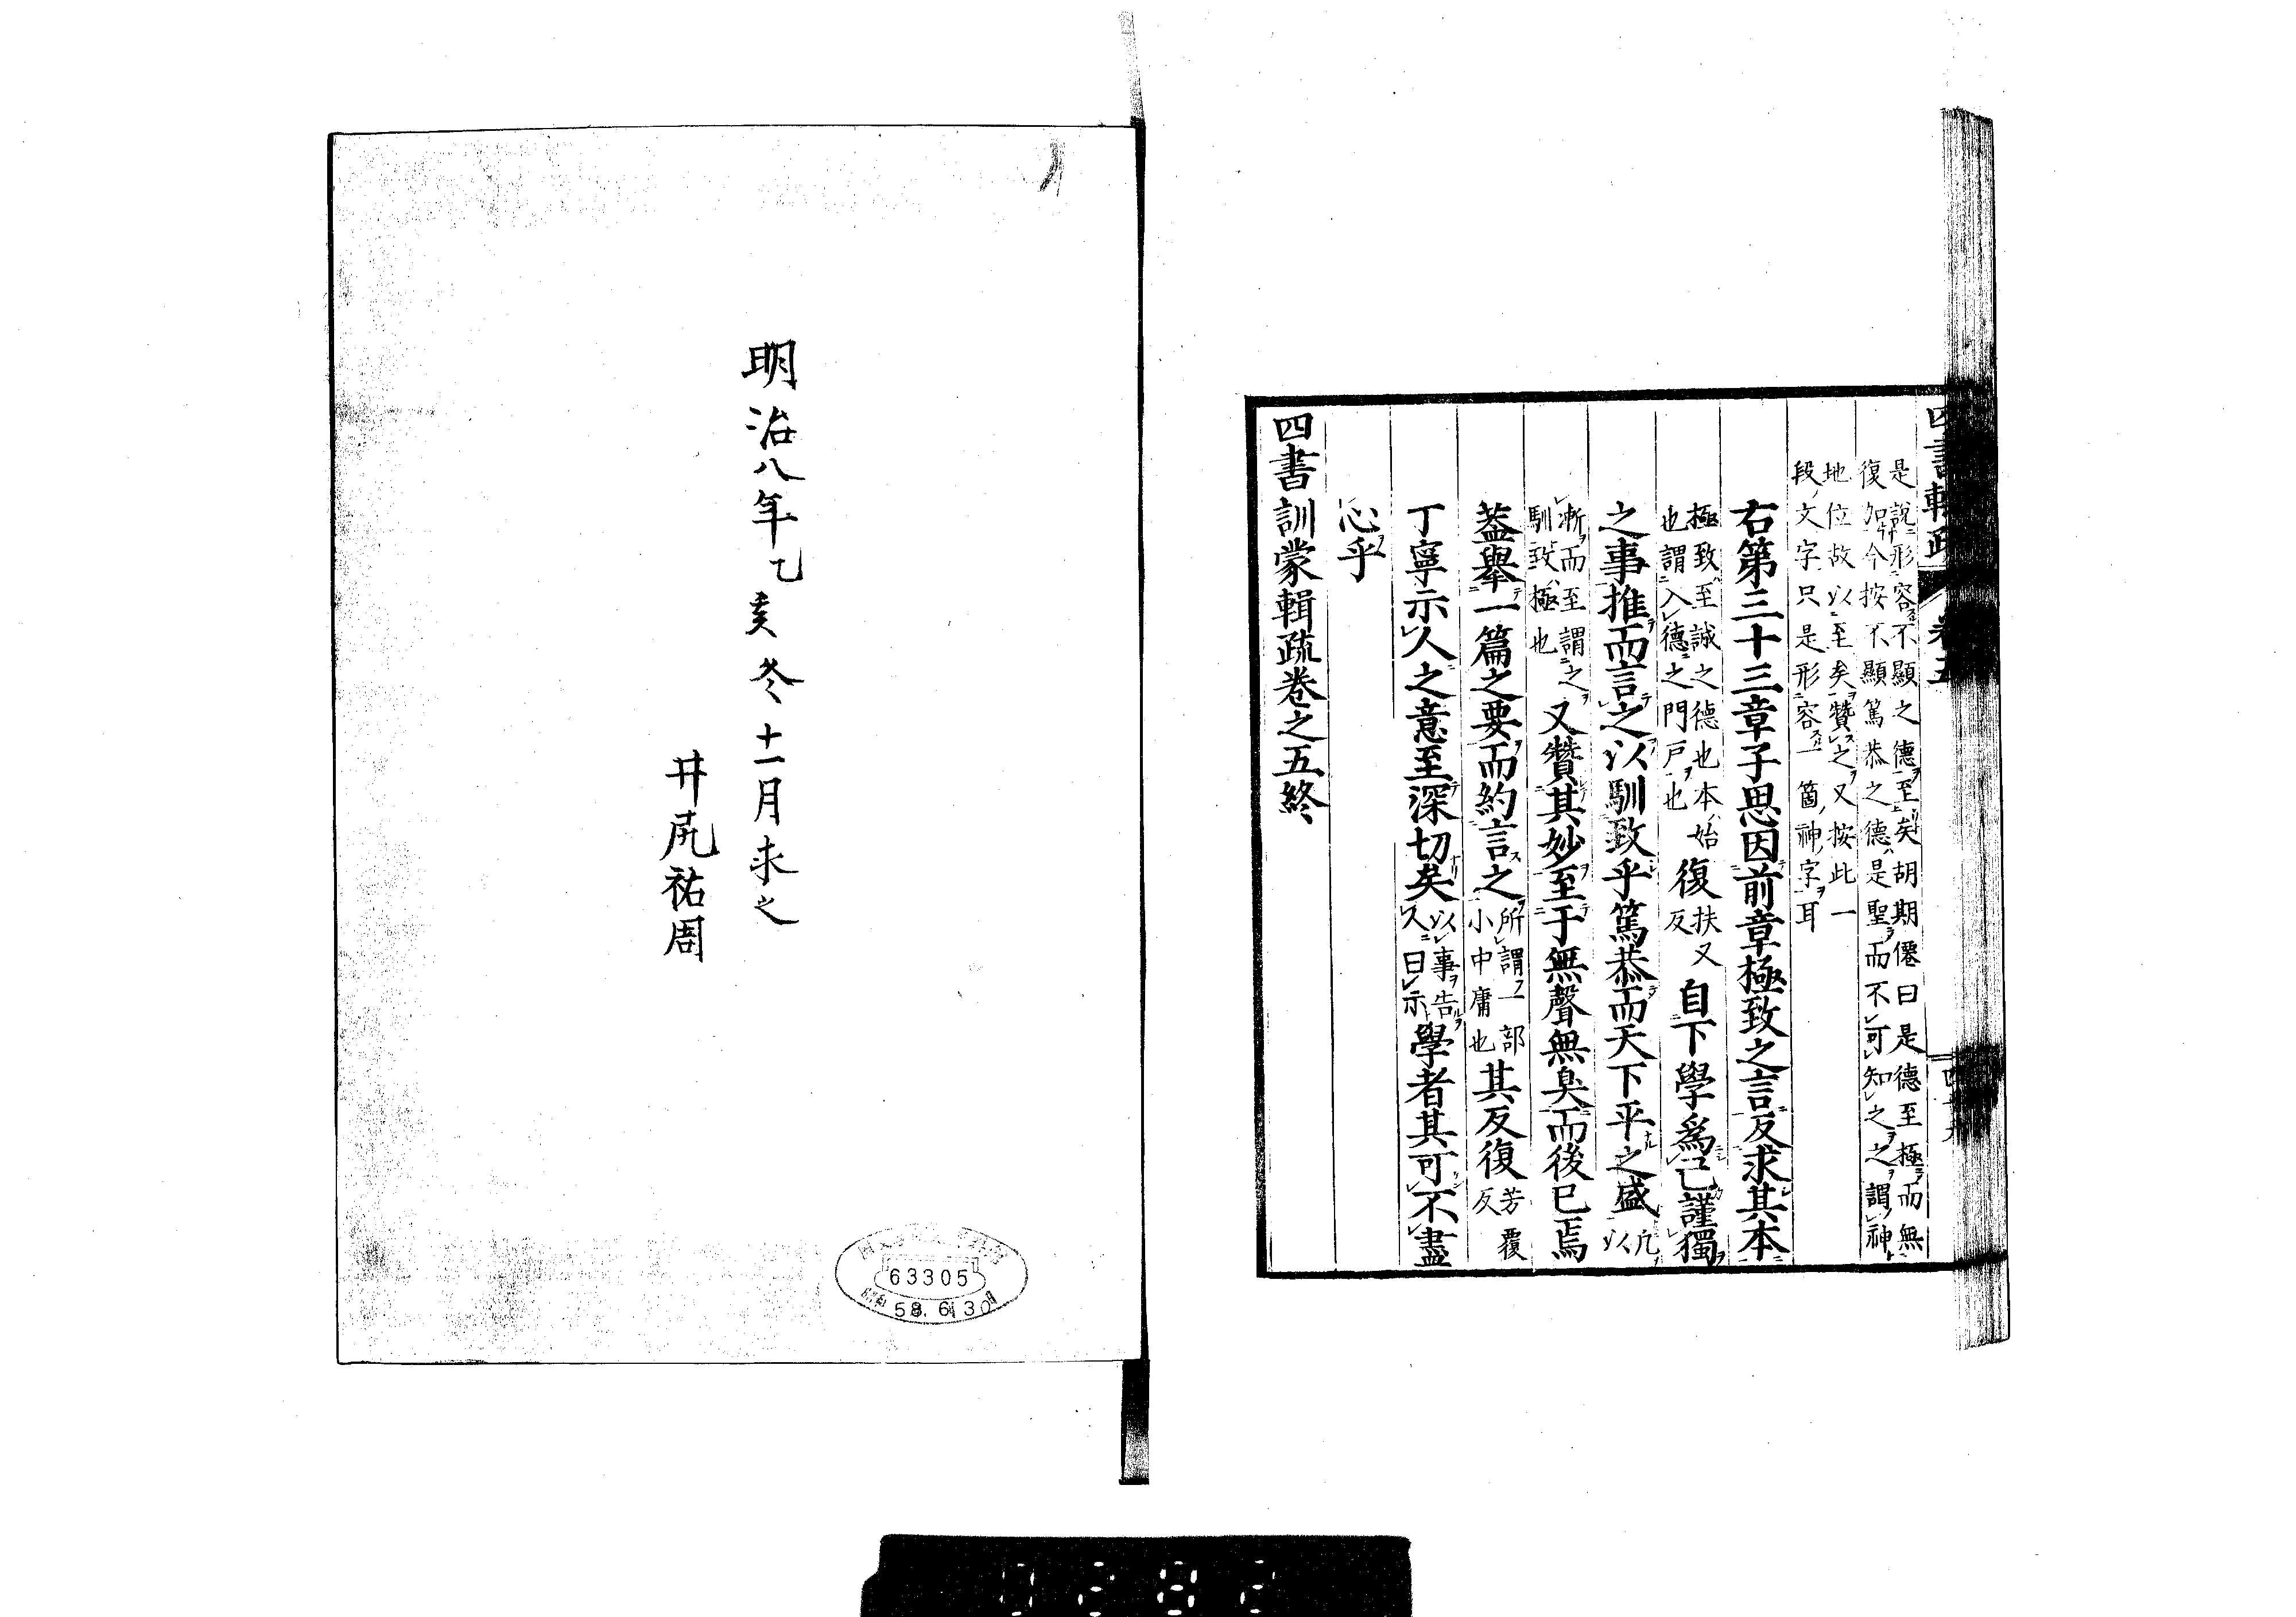 四書輯疏 卷五
是說形容不顯之德至矣胡期僊曰是德至極而無
復加今按不顯篤恭之德是聖而不可知之之謂神
地位故以至矣贊之又按此一
段文字只是形容一箇神字耳
右第三十三章子思因前章極致之言反求其本
極致至誠之德也本始
也謂入德之門戸也
復
扶又
反
自下學爲己謹獨
之事推而言之以馴致乎篤恭而天下平之盛
凢
以
漸而至謂之
馴致極也
又贊其妙至于無聲無臭而後已焉
蓋舉一篇之要而約言之
所謂一部
小中庸也
其反復
芳覆
反
丁寧示人之意至深切矣
以事告
人曰示
學者其可不盡
心乎
四書訓蒙輯疏卷之五終
明治八年乙亥冬十一月求之
井尻祐周
63305
昭和 58.6.30